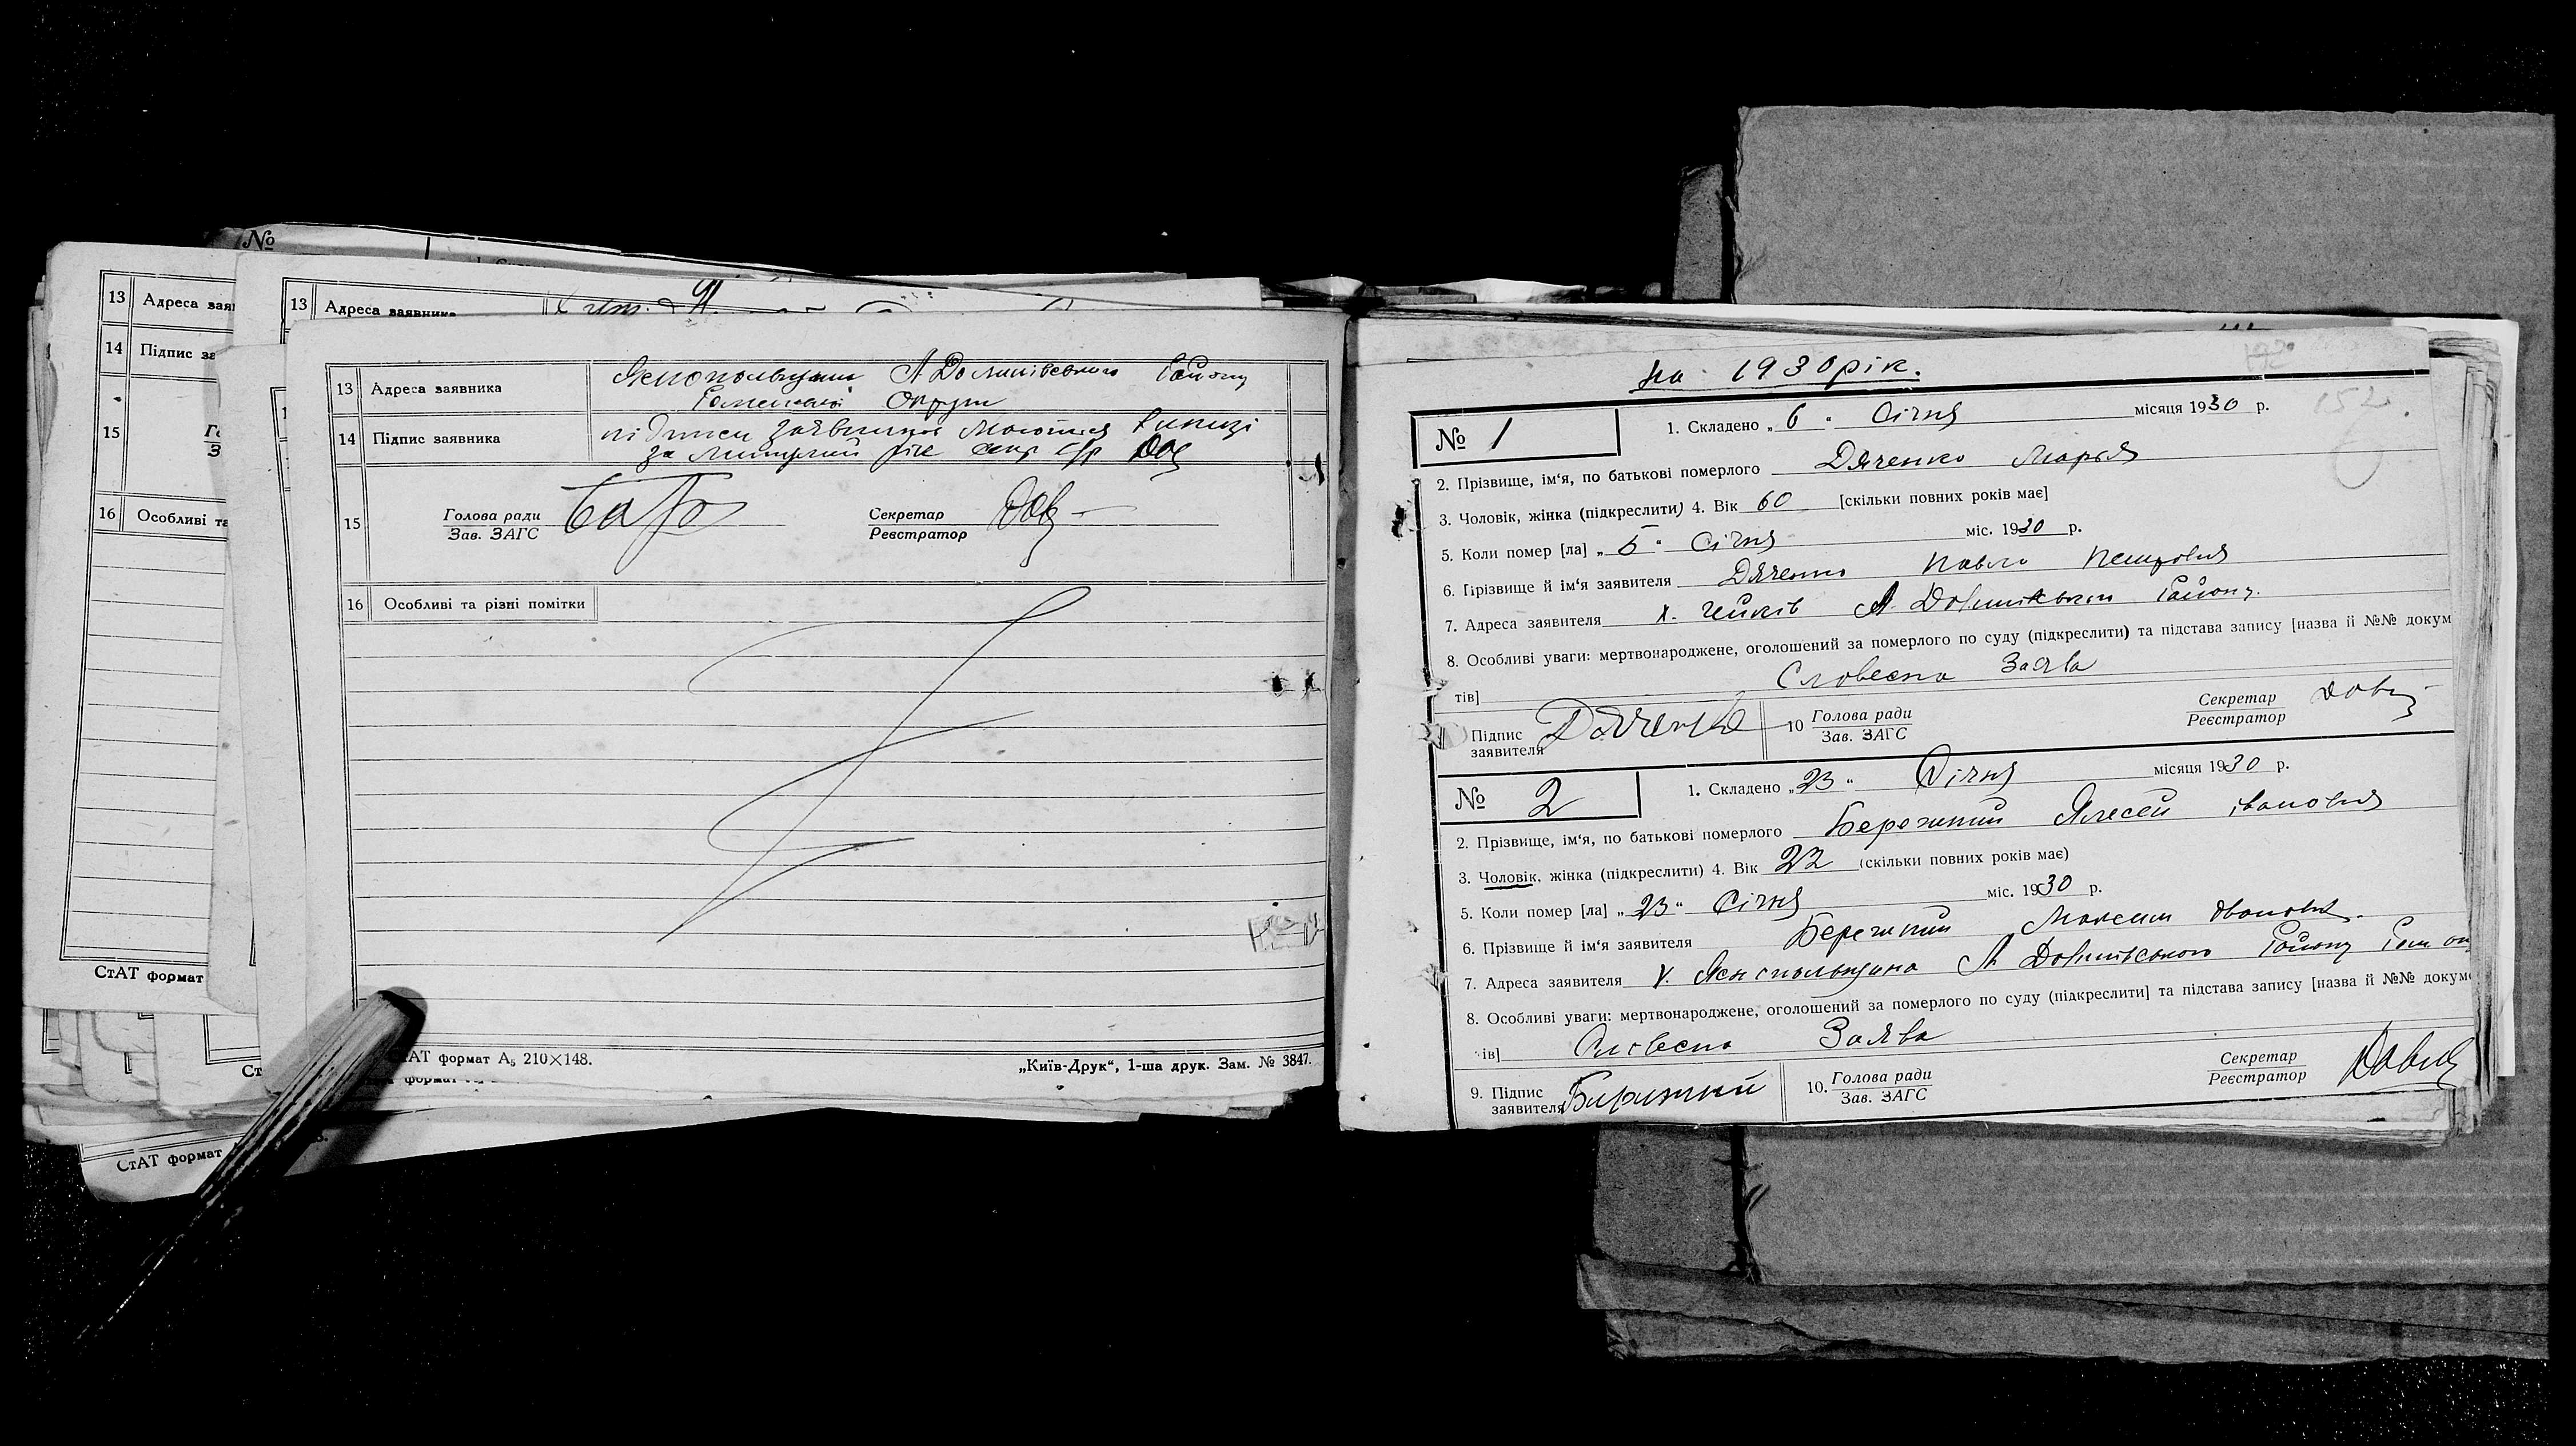 №
13 Адреса зая
14 Підпис за
15
16 Особливі та
СтАТ формат
13 Адреса заявника
13 Адреса заявника Яснопольщина Л Долинівського Району
Роменської Округи
14 Підпис заявника підписи заявників маються в книзі
за минулий рік секр с/р Дов
15 Голова ради Секретар Дов
Зав. ЗАГС Реєстратор
16 Особливі та різні помітки
СтАТ формат А₅ 210×148. „Київ-Друк“, 1-ша друк. Зам. № 3847.
СтАТ формат
на 1930 рік.
152
№ 1 1. Складено „6“ Січня місяця 1930 р.
2. Прізвище, ім‘я, по батькові померлого Дяченко Марья
3. Чоловік, жінка (підкреслити) 4. Вік 60 [скільки повних років має]
5. Коли помер [ла] „5“ Січня міс. 1930 р.
6. Прізвище й ім‘я заявителя Дяченко Павло Петрович
7. Адреса заявителя х. Л Долинівського Району.
8. Особливі уваги: мертвонароджене, оголошений за померлого по суду (підкреслити) та підстава запису [назва й №№ докум
тів] Словесна Заява
Підпис заявителя Дяченко 10 Голова ради Зав. ЗАГС Секретар Реєстратор
№ 2 1. Складено „23“ Січня місяця 1930 р.
2. Прізвище, ім‘я, по батькові померлого Бережний Алєсей івановия
3. Чоловік, жінка (підкреслити) 4. Вік 22 (скільки повних років має)
5. Коли помер [ла] „23“ Січня міс. 1930 р.
6. Прізвище й ім‘я заявителя Бережний Максим Іванович.
7. Адреса заявителя х. Яснопольщина Л Долинівського Району Ром ок
8. Особливі уваги: мертвонароджене, оголошений за померлого по суду (підкреслити] та підстава запису [назва й №№ докуме
ів] Словесна Заява
9. Підпис заявителя Бирижний 10. Голова ради Зав. ЗАГС Секретар Реєстратор